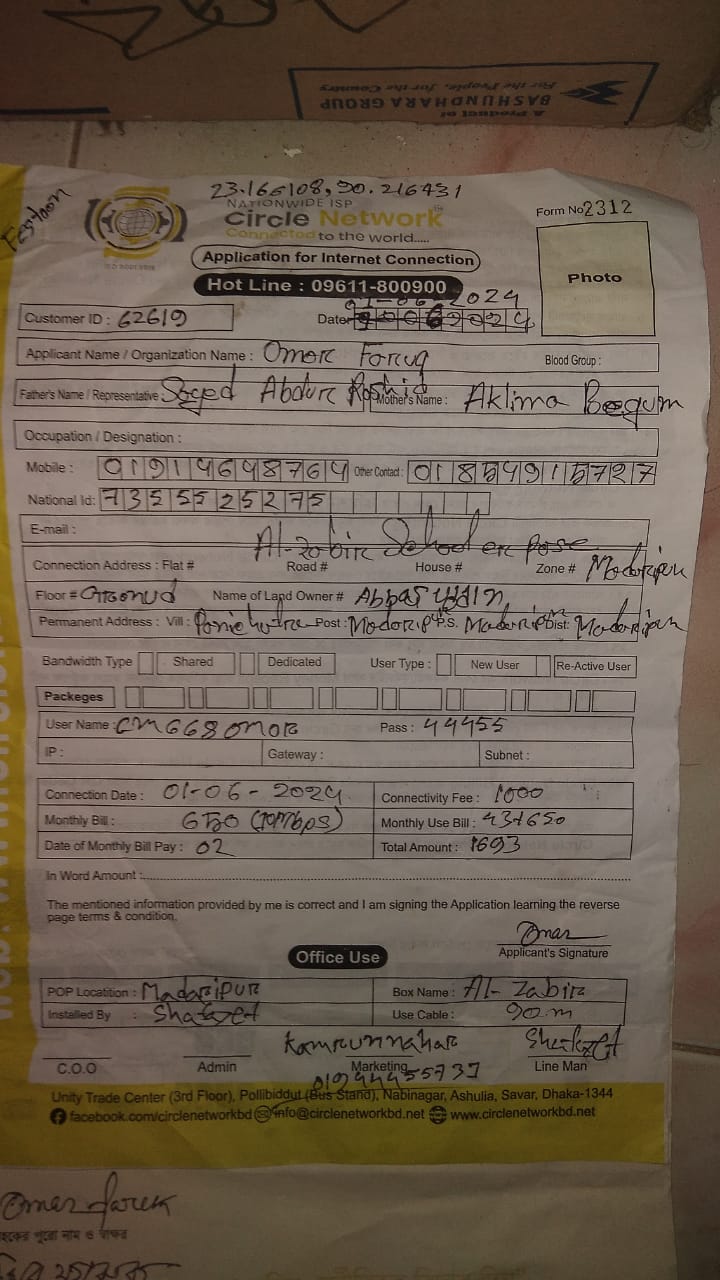 A Product of
BASHUNDHARA GROUP
For the People, for the Country
Festoon
23.166108,90.216431
NATIONWIDE ISP
Circle Network
Connected to the world.....
Form No 2312
Application for Internet Connection
Photo
Hot Line : 09611-800900
01-06-2024
Customer ID : 62619 Date
Applicant Name / Organization Name : Omor Faruq Blood Group :
Father's Name / Representative Soyed Abdur Roshid Mother's Name : Aklima Begum
Occupation / Designation :
Mobile : 01914648764 Other Contact : 01854915727
National Id: 7355525275
E-mail :
Al-zabir School er pase
Connection Address : Flat # Road # House # Zone # Madaripur
Floor # Name of Land Owner # Abbas
Permanent Address : Vill : Post : Madaripur P.S. Madaripur Dist: Madaripur
Bandwidth Type Shared Dedicated User Type : New User Re-Active User
Packeges
User Name : CM668omor Pass : 44455
IP : Gateway : Subnet :
Connection Date : 01-06-2024 Connectivity Fee : 1000
Monthly Bill : 650 (10Mbps) Monthly Use Bill : 43+650
Date of Monthly Bill Pay : 02 Total Amount : 1693
In Word Amount :
The mentioned information provided by me is correct and I am signing the Application learning the reverse
page terms & condition.
Omar
Applicant's Signature
Office Use
POP Locatition : Madaripur Box Name : Al-Zabir
Installed By : Use Cable : 90 m
Kamrunnahar
C.O.O Admin Marketing Line Man
01944455737
Unity Trade Center (3rd Floor), Pollibiddut (Bus Stand), Nabinagar, Ashulia, Savar, Dhaka-1344
facebook.com/circlenetworkbd info@circlenetworkbd.net www.circlenetworkbd.net
Omar Faruk
পুরো নাম ও স্বাক্ষর